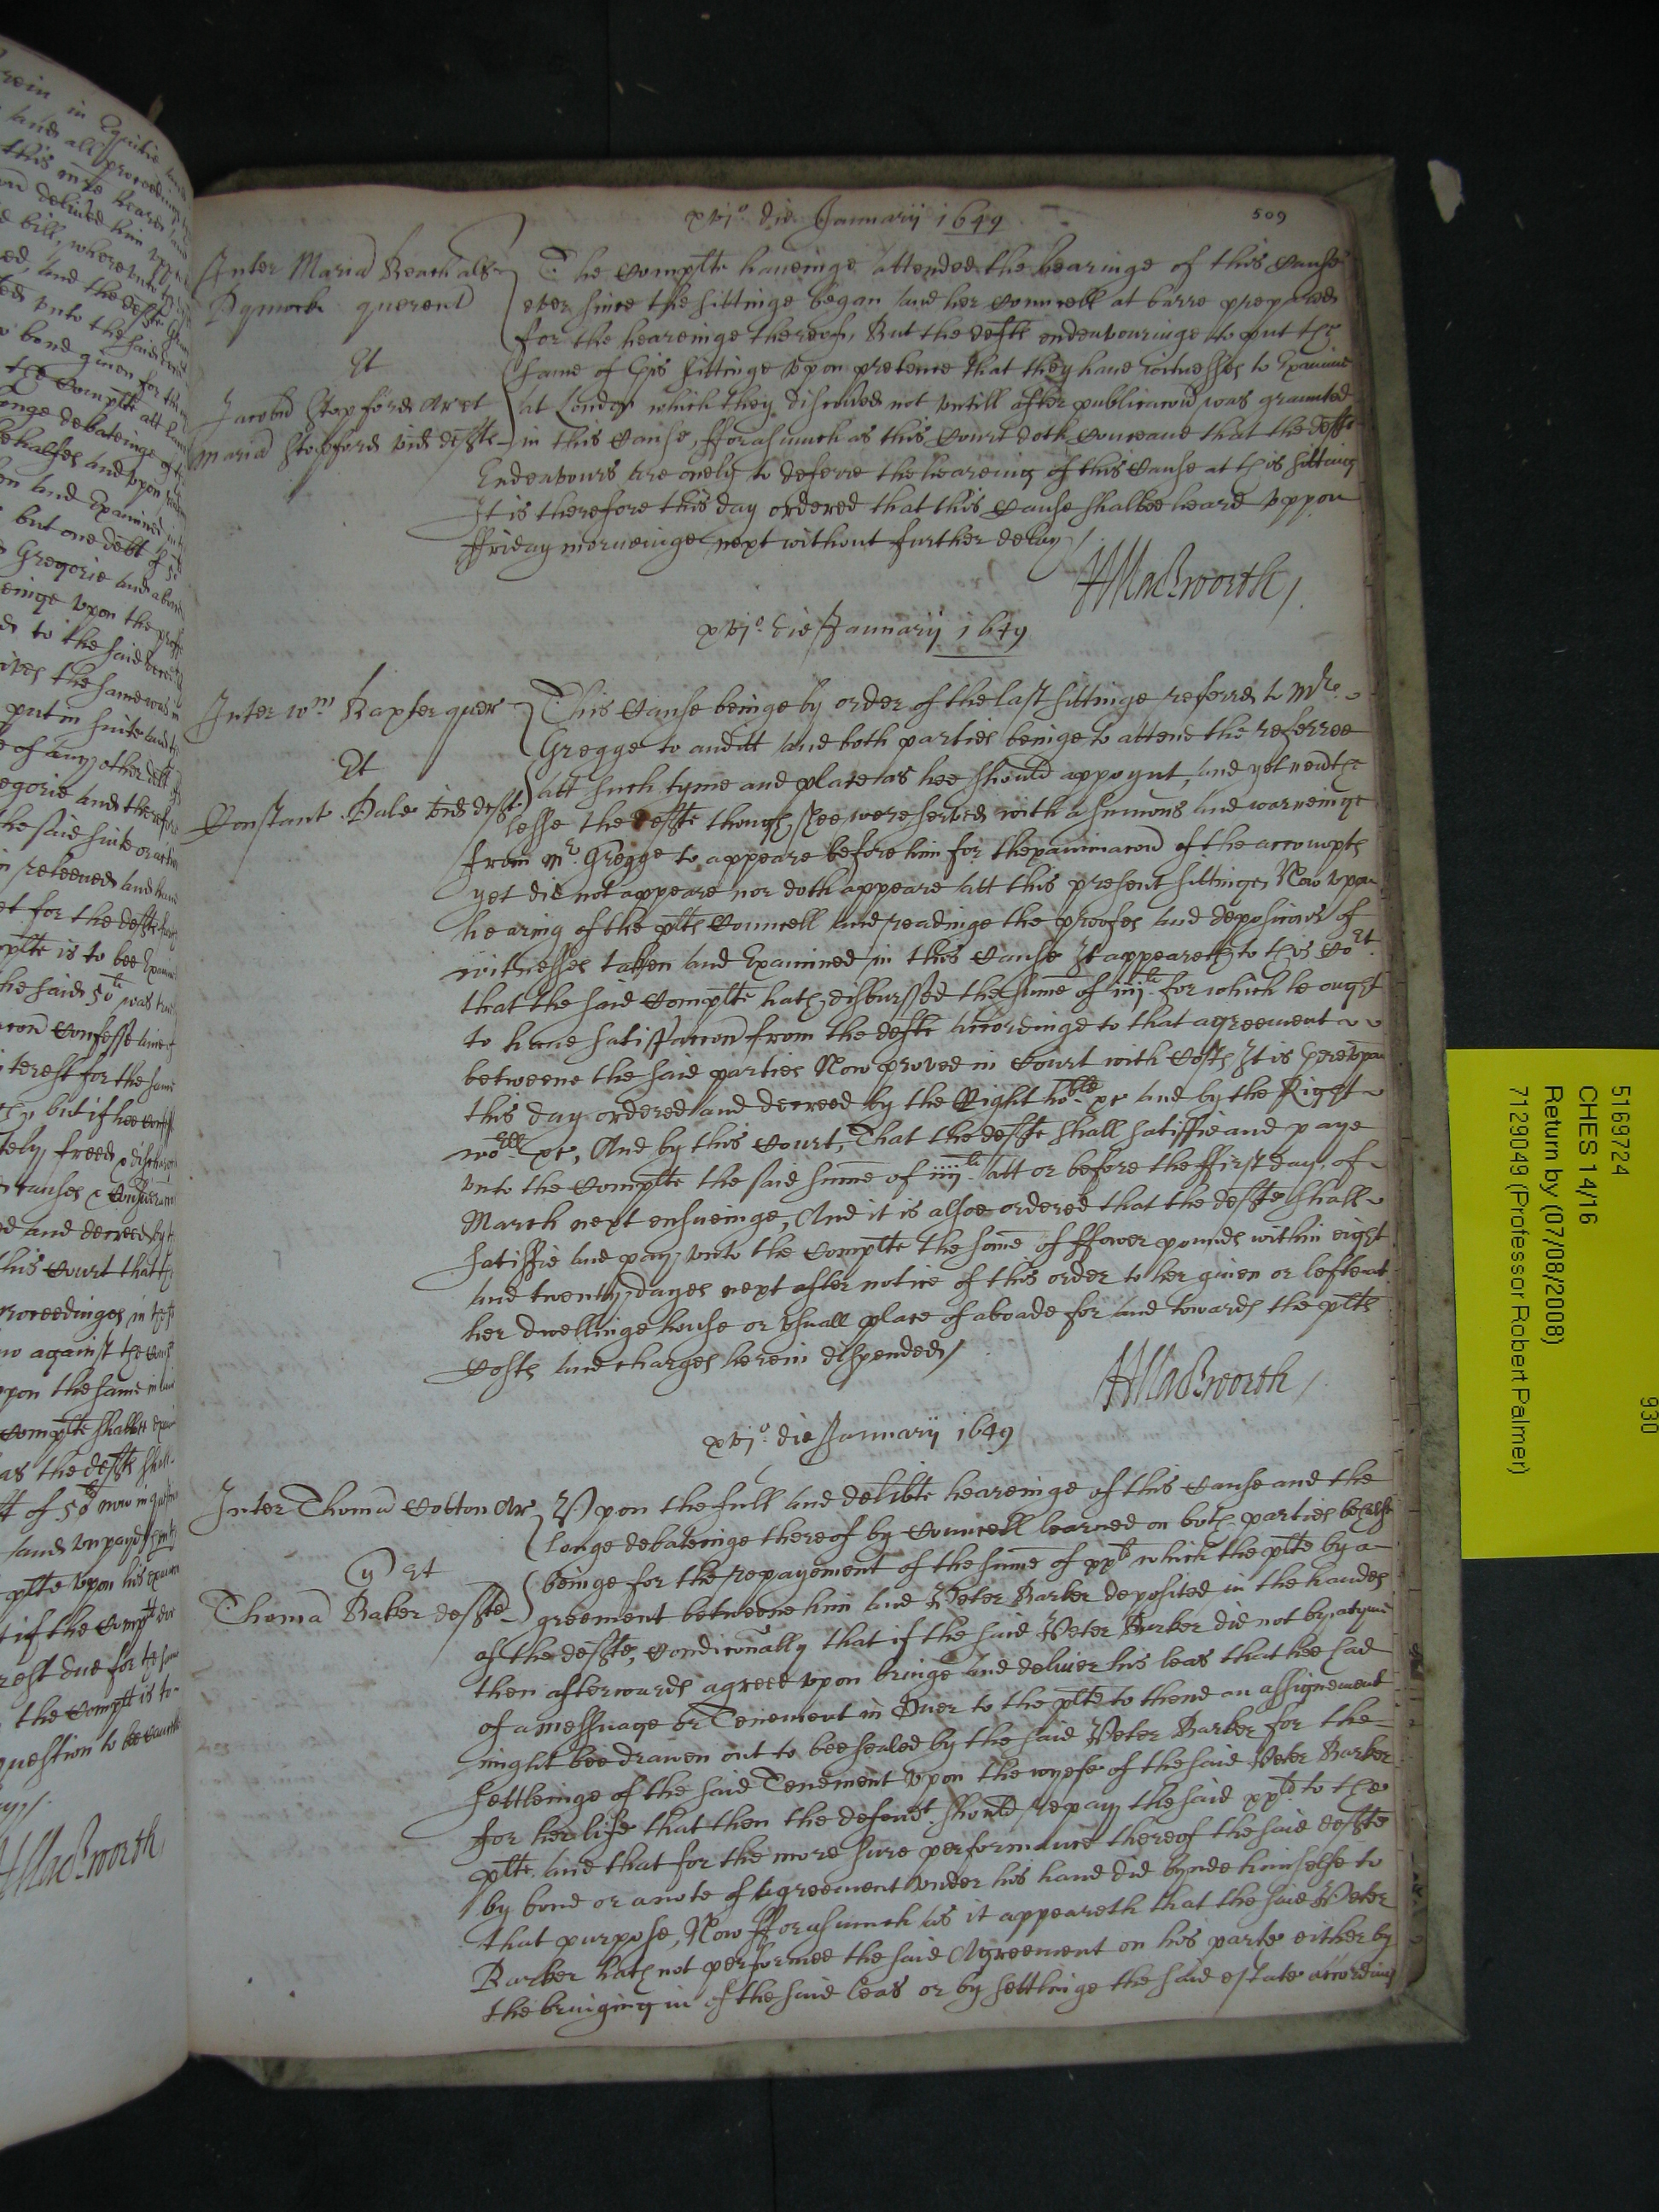 509
xvjo die Januarij 1649
Inter Mariā Beach als
Dymock querent
Et
Jacobū Stopford Ar et
Mariā Stopford vid defts
The Complt haveinge attended the hearinge of this Cause
ever since the sittinge began and her Councell at barre prepared
for the heareinge thereof, But the defts endeavouringe to put the
same of this sittinge vpon pretence that they have witnesses to Examine
at London which they discovered not vntill after publicacon was graunted
in this Cause, fforasmuch as this Court doth Conceave that the defts
Endeavours are onely to deferre the heareing of this Cause at this sitting
It is therefore this day ordered that this Cause shalbee heard vppon
ffriday morneinge next without further delay /
HMackworth /
xvjo die Januarij 1649
Inter Wm Baxter quer
Et
Constant Dale vid deft
This Cause beinge by order of the last sittinge referred to Mr
Gregge to auditt and both parties beinge to attend the referree
att such tyme and place as hee should appoynt, and yet neverthe
lesse the defte though shee were served with a sumons and warneinge
from Mr Gregge to appeare before him for thexaminacon of the accompts
yet did not appeare nor doth appeare att this present sittinge, Now vpon
hearing of the plts Councell and readinge the proofes and deposicons of
witnesses taken and Examined in this Cause It appeareth to this Cort
that the said Complte hath disburssed the sume of iiijli for which he ought
to have satisfaccon from the defte accordinge to that agreement
betweene the said parties Now proved in Court with Costs It is herevpon
this day ordered and decreed by the Right hoble &c and by the Right
worll &c, And by this Court, That the defte shall satisfie and paye
vnto the Complte the said sume of iiijli att or before the ffirst day of
March next ensueinge, And it is alsoe ordered that the defte shall
satisfie and pay vnto the Complte the some of ffower pounds within eight
and twenty dayes next after notice of this order to her given or lefte att
her dwellinge house or vsuall place of aboade for and towards the plts
Costs and charges herein dispended /
HMackworth /
xvjo die Januarij 1649
Inter Thomā Cotton Ar
Et
Thomā Baker defte
Vpon the full and delibte heareinge of this Cause and the
longe debateinge thereof by Councell learned on both parties behalfe
beinge for the repayement of the sume of xxli which the plte by a
greement betweene him and Peter Barker deposited in the handes
of the defte, Condiconally that if the said Peter Barker did not by a tyme
then afterwards agreed vpon bringe and deliver his leas that hee had
of a messuage or Tenement in Over to the plte to thend an assignement
might bee drawen out to bee sealed by the said Peter Barker for the
settleinge of the said Tenement vpon the wyefe of the said Peter Barker
for her life that then the defendt should repay the said xxli to the
plte and that for the more sure performance thereof the said defte
by bond or a note of Agreement vnder his hand did bynde himselfe to
that purpose, Now fforasmuch as it appeareth that the said Peter
Barker hath not performed the said Agreement on his parte either by
the bringing in of the said leas or by settlinge the said estate according
5169724
CHES 14/16
Return by (07/08/2008)
7129049 (Professor Robert Palmer)
930